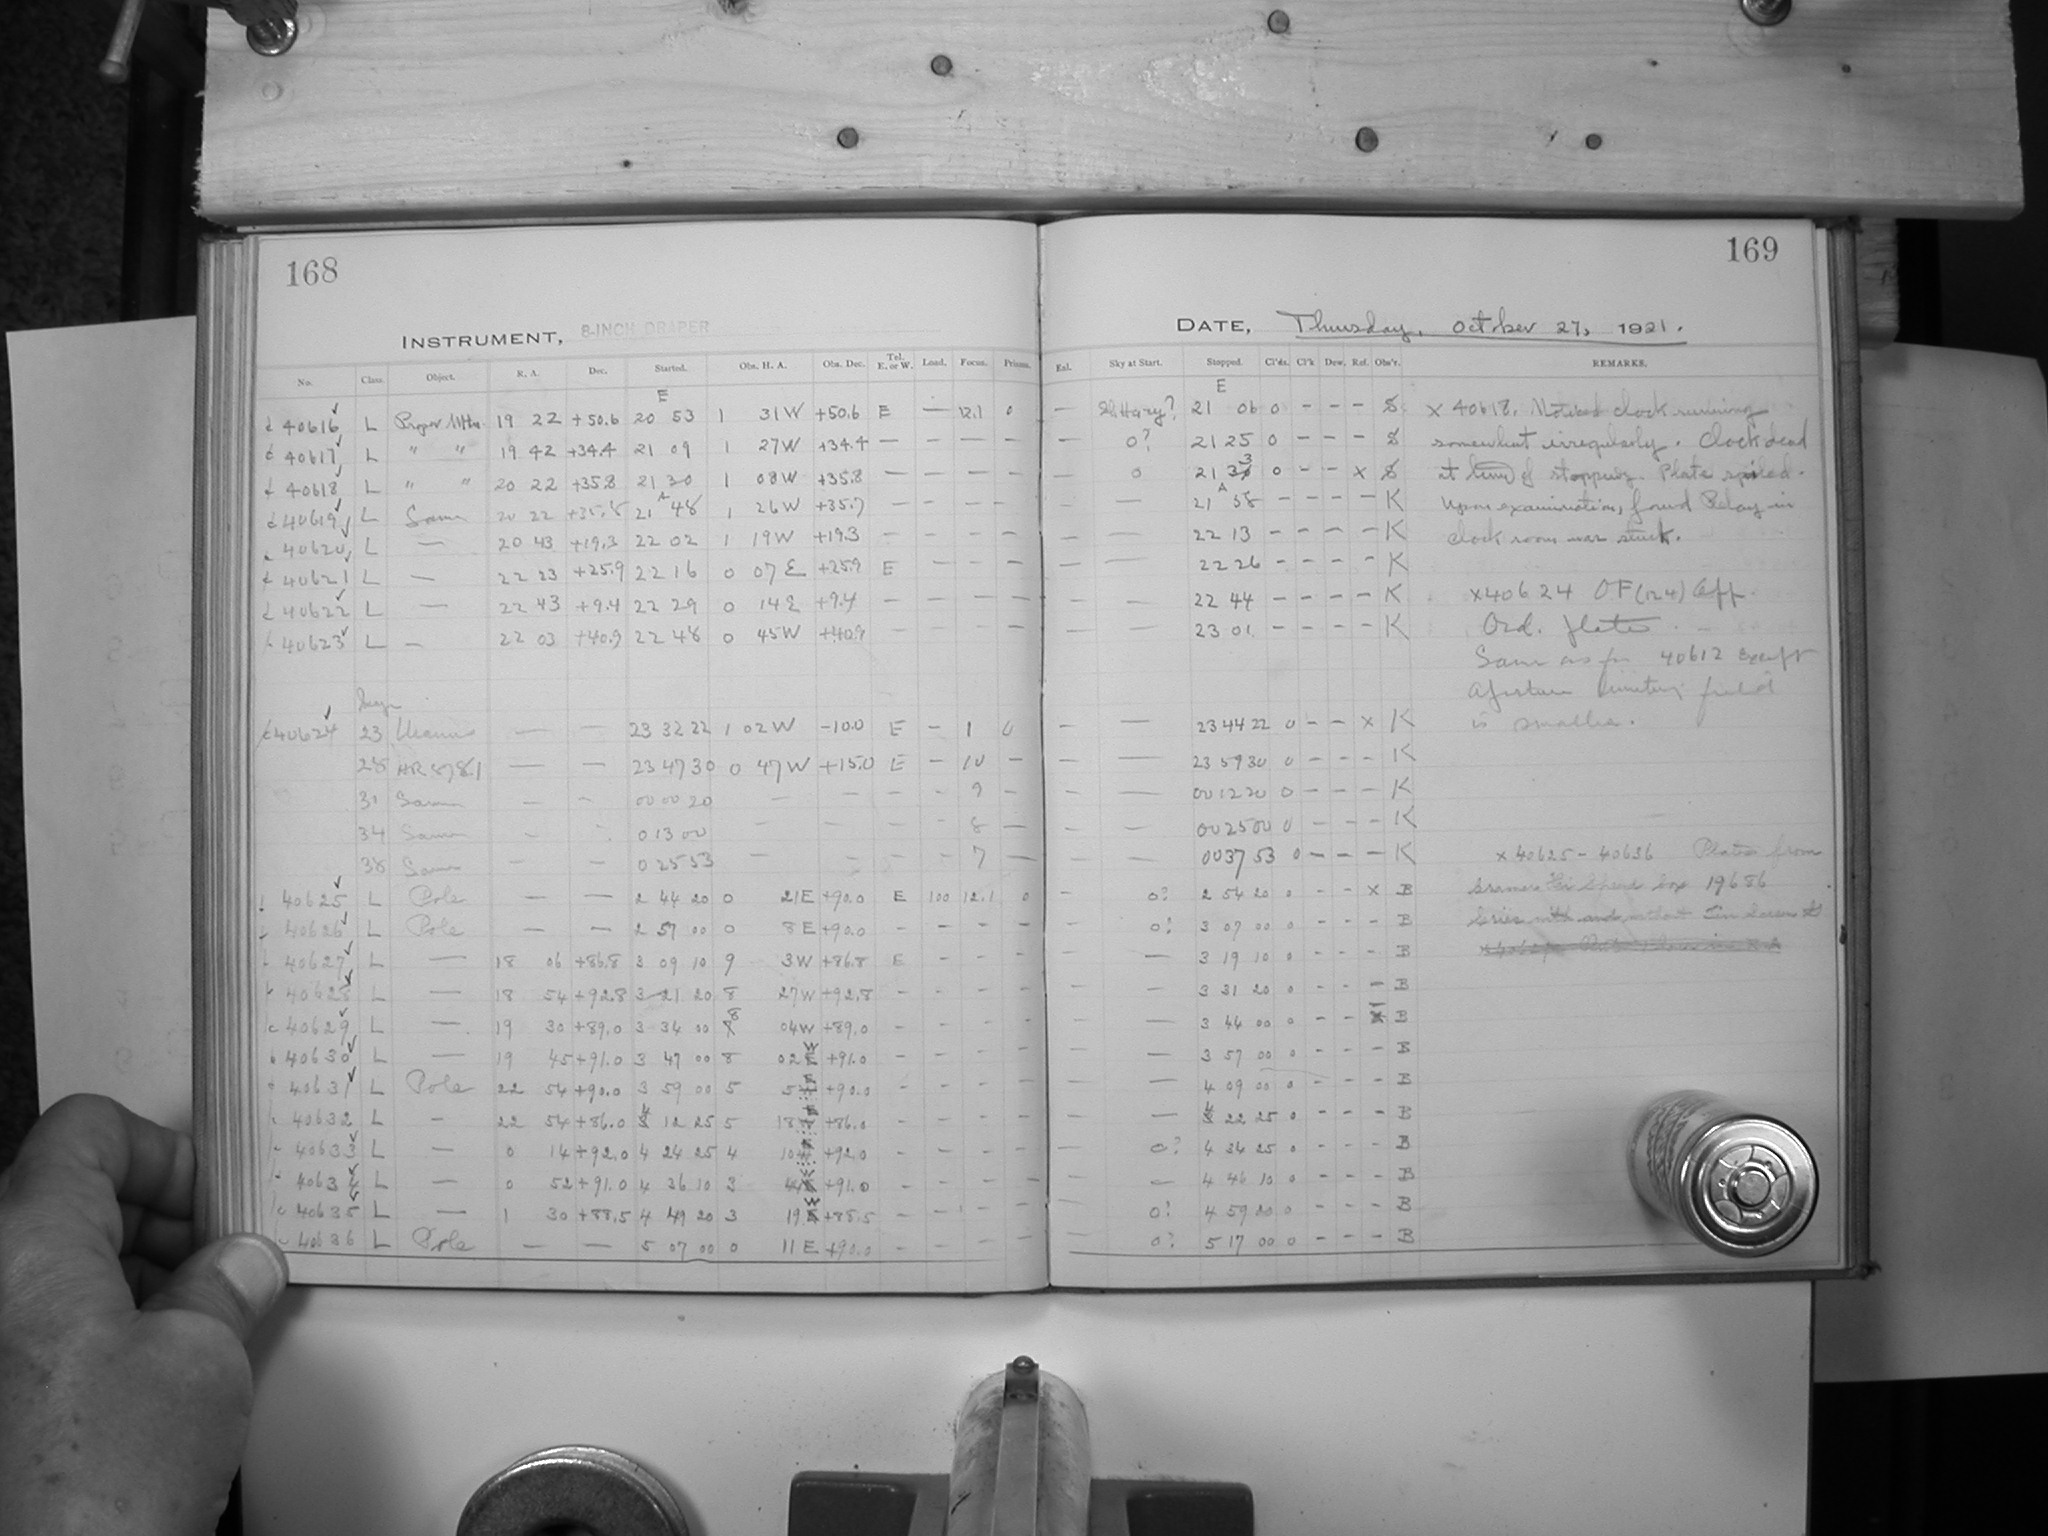 168
INSTRUMENT, 8-INCH DRAPER
No. Class. Object. R. A. Dec. Started. Obs. H. A. Obs. Dec. Tel. E. or W. Load. Focus. Prisms.
E
40616 L Proper Mtns 19 22 +50.6 20 53 1 31W +50.6 E — 12.1 0
40617 L " " 19 42 +34.4 21 09 1 27W +34.4 — — — —
40618 L " " 20 22 +35.8 21 30 1 08W +35.8 — — — —
A
40619 L Same 20 22 +35.8 21 48 1 26W +35.7 — — — —
40620 L — 20 43 +19.3 22 02 1 19W +19.3 — — — —
40621 L — 22 23 +25.9 22 16 0 07 E +25.9 E — — —
40622 L — 22 43 +9.4 22 29 0 14E +9.4 — — — —
40623 L — 22 03 +40.9 22 48 0 45W +40.9 — — — —
40624 23 Uranus — — 23 32 22 1 02W -10.0 E — 1 0
28 HR 8781 — — 23 47 30 0 47W +15.0 E — 10 —
31 Same — — 00 00 20 — — — — 9
34 Same — — 0 13 00 — — — — 8 —
38 Same — — 0 25 53 — — — — 7 —
40625 L Pole — — 2 44 20 0 21E +90.0 E 100 12.1 0
40626 L Pole — — 2 57 00 0 8E +90.0 — — — —
40627 L — 18 06 +86.8 3 09 10 9 3W +86.8 E — — —
40628 L — 18 54 +92.8 3 21 20 8 27W +92.8 — — — —
40629 L — 19 30 +89.0 3 34 00 8 04W +89.0 — — — —
40630 L — 19 45 +91.0 3 47 00 8 02 W +91.0 — — — —
40631 L Pole 22 54 +90.0 3 59 00 5 +90.0 — — — —
40632 L — 22 54 +86.0 4 12 25 5 18 +86.0 — — — —
40633 L — 0 14 +92.0 4 24 25 4 10 +92.0 — — — —
40634 L — 0 52 +91.0 4 36 10 3 44 +91.0 — — — —
40635 L — 1 30 +88.5 4 49 20 3 19 W +88.5 — — — —
40636 L Pole — — 5 07 00 0 11E +90.0 — — — —
169
DATE, Thursday, October 27, 1921.
Enl. Sky at Start. Stopped. Cl'ds. Cl'k Dew. Ref. Obs'r. REMARKS.
E
— 21 06 0 — — — S x 40618. Noticed clock running
— 0? 21 25 0 — — — S somewhat irregularly. Clock dead
— 0 21 33 0 — — x S at time of stopping. Plate spoiled.
A
— — 21 58 — — — — K Upon examination, found Relay in
— — 22 13 — — — — K clock room was stuck.
— — 22 26 — — — — K
— — 22 44 — — — — K x40624 OF(124) Aff.
— — 23 01 — — — — K Ord. plate.
Same as for 40612 except
aperture limiting field
— — 23 44 22 0 — — x K is smaller.
— — 23 59 30 0 — — — K
— — 00 12 20 0 — — — K
— — 00 25 00 0 — — — K
— — 00 37 53 0 — — — K x 40625-40636 Plates from
— 0? 2 54 20 0 — — x B box 19686
— 0? 3 07 00 0 — — — B Series with and without
— — 3 19 10 0 — — — B
— — 3 31 20 0 — — — B
— — 3 44 00 0 — — — B
— — 3 57 00 0 — — — B
— — 4 09 00 0 — — — B
— — 4 22 25 0 — — — B
— 0? 4 34 25 0 — — — B
— — 4 46 10 0 — — — B
— 0? 4 59 20 0 — — — B
— 0? 5 17 00 0 — — — B